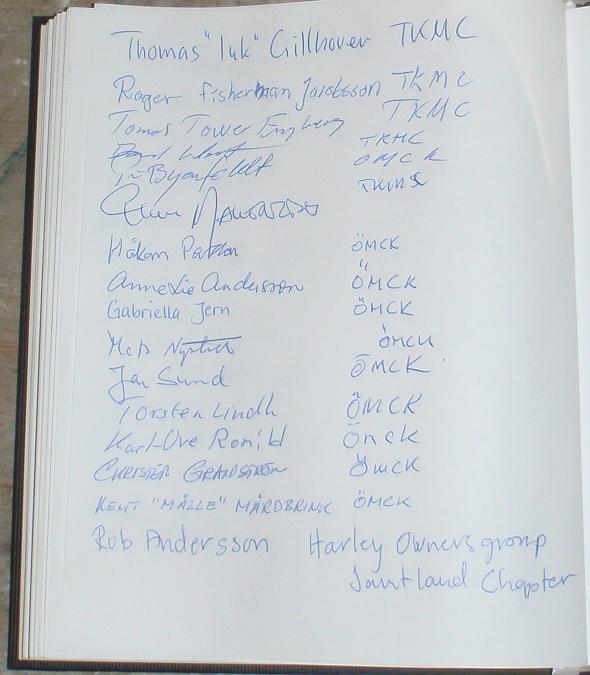 Thomas "Iuk" Gillhover TKMC
Roger fisherman Jacobsson TKMC
Tomas Tower Engberg TKMC
TKMC
ÖMCK
TKMC
Håkan
ÖMCK
Annelie Andersson ÖMCK
Gabriella Jern ÖMCK
Mats ÖMCK
Jan Sund ÖMCK
Torsten Lindh ÖMCK
Karl-Ove ÖMCK
CHRISTER GRANSTRÖM ÖMCK
KENT "MÅLLE" MÅRDBRINK ÖMCK
Rob Andersson Harley Owners group
Jamtland Chapter